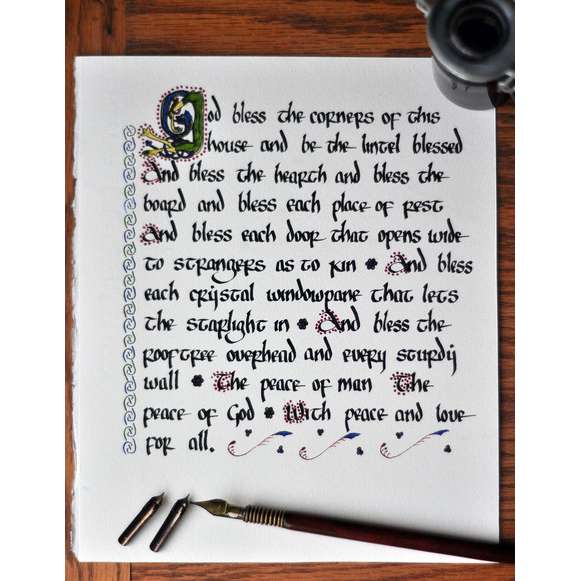 God bless the corners of this
house and be the lintel blessed
And bless the hearth and bless the
board and bless each place of rest
And bless each door that opens wide
to strangers as to kin And bless
each crystal windowpane that lets
the starlight in And bless the
rooftree overhead and every sturdy
wall The peace of man The
peace of God With peace and love
for all.